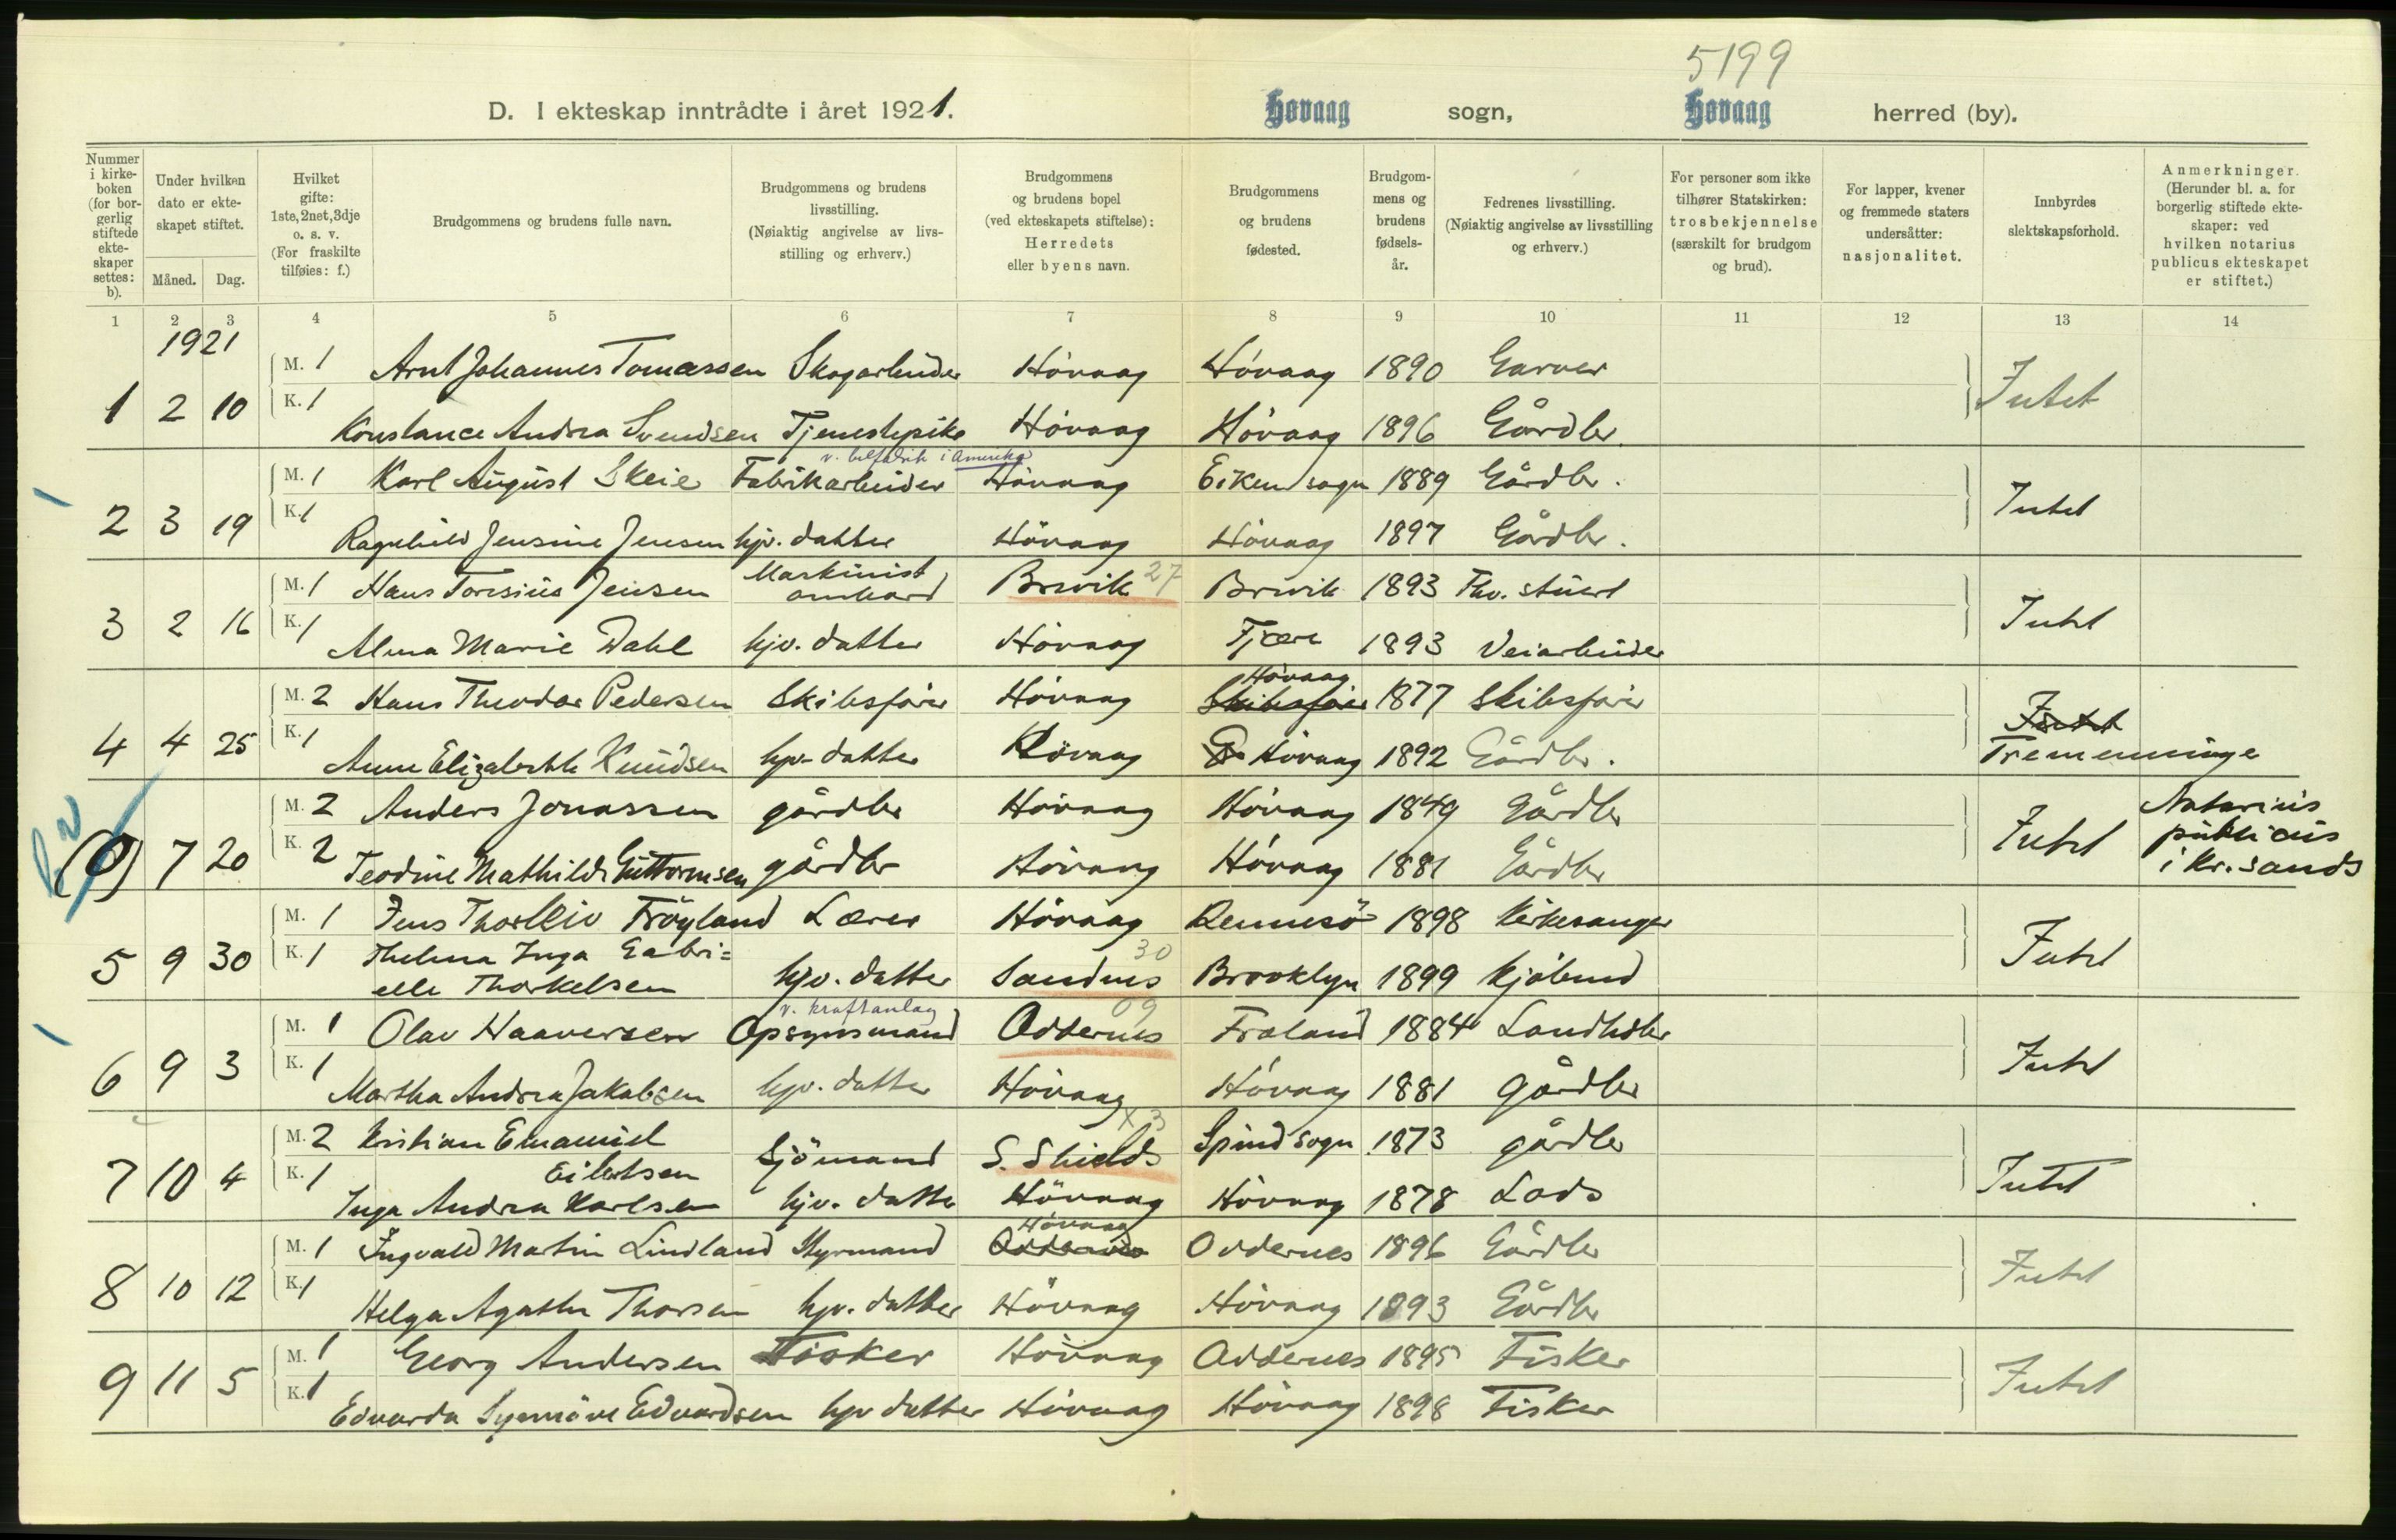 5199
D. I ekteskap inntrådte i året 1921. Høvaag sogn, Høvaag herred (by).
Nummer i kirke-boken (for bor-gerlig stiftede ekte-skaper settes: b).
Under hvilken dato er ekte-skapet stiftet.
Måned. Dag.
Hvilket gifte: 1ste, 2net, 3dje o. s. v. (For fraskilte tilføies: f.)
Brudgommens og brudens fulle navn.
Brudgommens og brudens livsstilling. (Nøiaktig angivelse av livs-stilling og erhverv.)
Brudgommens og brudens bopel (ved ekteskapets stiftelse): Herredets eller byens navn.
Brudgommens og brudens fødested.
Brudgom-mens og brudens fødsels-år.
Fedrenes livsstilling. (Nøiaktig angivelse av livsstilling og erhverv.)
For personer som ikke tilhører Statskirken: trosbekjennelse (særskilt for brudgom og brud).
For lapper, kvener og fremmede staters undersåtter: nasjonalitet.
Innbyrdes slektskapsforhold.
Anmerkninger. (Herunder bl. a. for borgerlig stiftede ekte-skaper: ved hvilken notarius publicus ekteskapet er stiftet.)
1 2 3 4 5 6 7 8 9 10 11 12 13 14
1921
M. 1 Arnt Johannes Tomassen Skogarbeider Høvaag Høvaag 1890 Garver
1 2 10 Intet
K. 1 Konstance Andrea Svendsen Tjenestepike Høvaag Høvaag 1896 Gårdbr.
v. bilfabrik i Amerika
M. 1 Karl August Skeie Fabrikarbeider Høvaag Eiken sogn 1889 Gårdbr.
2 3 19 Intet
K. 1 Ragnhild Jensine Jensen hjv. datter Høvaag Høvaag 1897 Gårdbr.
M. 1 Hans Torsius Jensen Maskinist ombord Brevik 27 Brevik 1893 Fhv. stuert
3 2 16 Intet
K. 1 Alma Marie Dahl hjv. datter Høvaag Fjære 1893 Veiarbeider
Høvaag
M. 2 Hans Theodor Pedersen Skibsfører Høvaag Skibsfører 1877 Skibsfører
4 4 25 Intet Tremenninge
K. 1 Anne Elizabeth Knudsen hjv. datter Høvaag Høvaag 1892 Gårdbr.
M. 2 Anders Jonassen gårdbr Høvaag Høvaag 1849 Gårdbr
(b) 7 20 Intet Notarius publicus i Kr.sands
K. 2 Teodine Mathilde Guttormsen gårdbr Høvaag Høvaag 1881 Gårdbr
M. 1 Jens Thorleiv Frøyland Lærer Høvaag Rennesö 1898 Kirkesanger
5 9 30 Intet
K. 1 Thelma Inga Gabri=
elle Thorkelsen hjv. datter Sandnes 30 Brooklyn 1899 Kjøbmd
v. kraftanlæg
M. 1 Olav Haaversen Opsynsmand Oddernes 09 Froland 1884 Landhdlr
6 9 3 Intet
K. 1 Martha Andrea Jakobsen hjv. datter Høvaag Høvaag 1881 gårdbr
M. 2 Kristian Emanuel
Eilertsen Sjömand S. Shields x3 Spind sogn 1873 gårdbr
7 10 4 Intet
K. 1 Inga Andrea Karlsen hjv. datter Høvaag Høvaag 1878 Lods
Høvaag
M. 1 Ingvald Martin Lindland Styrmand Oddernes Oddernes 1896 Gårdbr
8 10 12 Intet
K. 1 Helga Agathe Thorsen hjv. datter Høvaag Høvaag 1893 Gårdbr
M. 1 Georg Andersen Fisker Høvaag Oddernes 1895 Fisker
9 11 5 Intet
K. 1 Edvarda Synnöve Edvardsen hjv datter Høvaag Høvaag 1898 Fisker